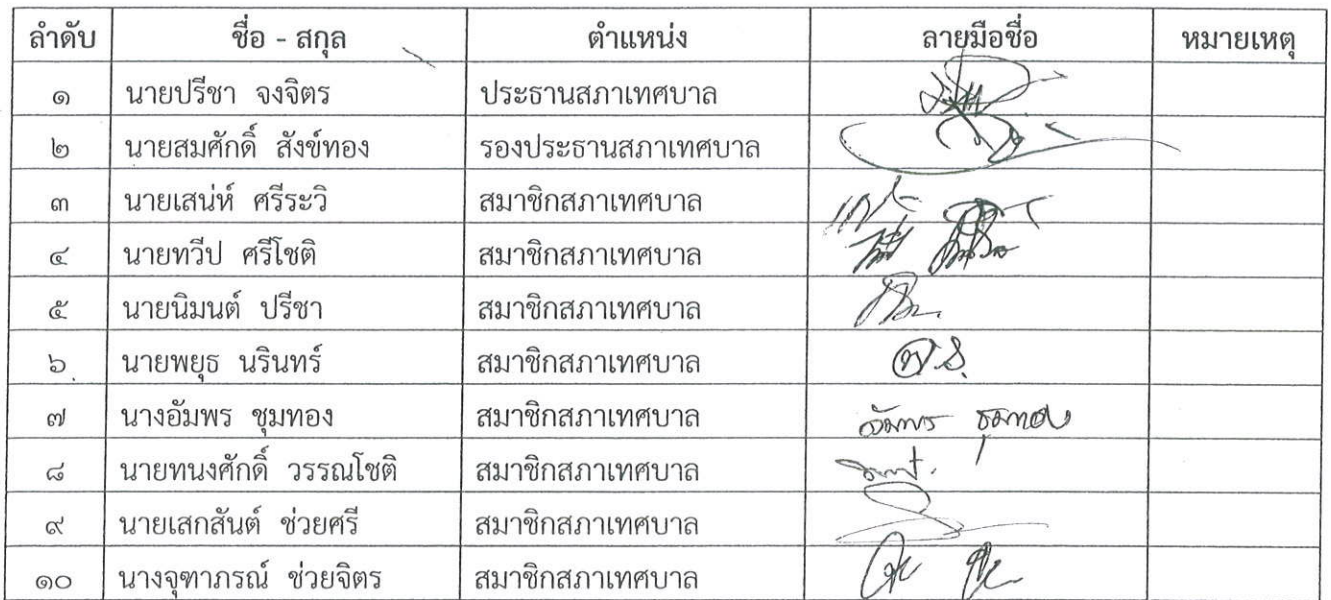 ลำดับ ชื่อ - สกุล ตำแหน่ง ลายมือชื่อ หมายเหตุ
๑ นายปรีชา จงจิตร ประธานสภาเทศบาล
๒ นายสมศักดิ์ สังข์ทอง รองประธานสภาเทศบาล
๓ นายเสน่ห์ ศรีระวิ สมาชิกสภาเทศบาล
๔ นายทวีป ศรีโชติ สมาชิกสภาเทศบาล
๕ นายนิมนต์ ปรีชา สมาชิกสภาเทศบาล
๖ นายพยุธ นรินทร์ สมาชิกสภาเทศบาล
๗ นางอัมพร ชุมทอง สมาชิกสภาเทศบาล อัมพร ชุมทอง
๘ นายทนงศักดิ์ วรรณโชติ สมาชิกสภาเทศบาล
๙ นายเสกสันต์ ช่วยศรี สมาชิกสภาเทศบาล
๑๐ นางจุฑาภรณ์ ช่วยจิตร สมาชิกสภาเทศบาล